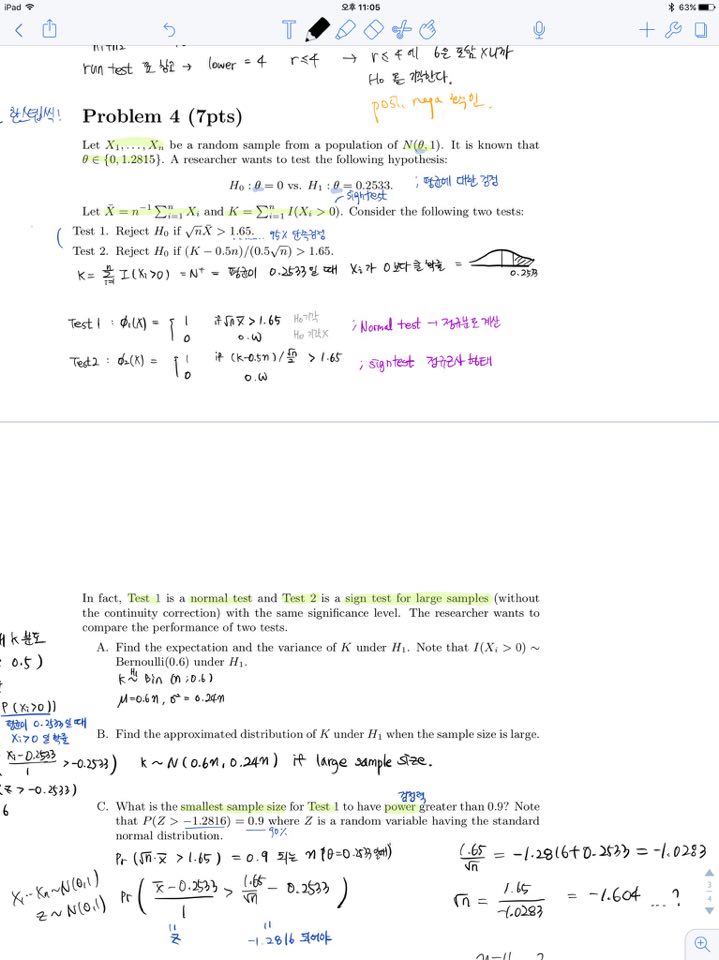 iPad
오후 11:05
63%
run test 표 참고 → lower = 4 r≤4 → r≤4 에 6은 포함 X니까
Ho 를 기각한다.
posi, nega
Problem 4 (7pts)
Let X₁, . . . , Xₙ be a random sample from a population of N(θ, 1). It is known that
θ ∈ {0, 1.2815}. A researcher wants to test the following hypothesis:
H₀ : θ = 0 vs. H₁ : θ = 0.2533.
; 평균에 대한 검정
sign test
Let X̄ = n⁻¹ ∑ⁿᵢ₌₁ Xᵢ and K = ∑ⁿᵢ₌₁ I(Xᵢ > 0). Consider the following two tests:
Test 1. Reject H₀ if √nX̄ > 1.65.
95% 단측검정
Test 2. Reject H₀ if (K − 0.5n)/(0.5√n) > 1.65.
K = ∑ⁿᵢ₌₁ I(Xi>0) = N⁺ = 평균이 0.2533일 때 Xi가 0보다 클 확률 =
0.2533
Test 1 : φ₁(X) = 1 if √n X̄ > 1.65 Ho기각 ; Normal test → 정규분포 계산
0 o.w Ho 기각X
Test2 : φ₂(X) = 1 if (K-0.5n)/ √n/2 > 1.65 ; sign test 정규근사 형태
0 o.w
In fact, Test 1 is a normal test and Test 2 is a sign test for large samples (without
the continuity correction) with the same significance level. The researcher wants to
compare the performance of two tests.
K 분포
0.5 )
A. Find the expectation and the variance of K under H₁. Note that I(Xᵢ > 0) ∼
Bernoulli(0.6) under H₁.
K ~ᴴ¹ Bin (n ; 0.6)
μ=0.6n, σ² = 0.24n
P (Xi>0))
평균이 0.2533일 때
Xi>0 일 확률
B. Find the approximated distribution of K under H₁ when the sample size is large.
Xi-0.2533 / 1 > -0.2533)
K ~ N (0.6n, 0.24n) if large sample size.
z > -0.2533)
6
검정력
C. What is the smallest sample size for Test 1 to have power greater than 0.9? Note
that P(Z > −1.2816) = 0.9 where Z is a random variable having the standard
90%
normal distribution.
Pr (√n·X̄ > 1.65) = 0.9 되는 n (θ=0.2533일때)
1.65/√n = -1.2816+0.2533 = -1.0283
Xi ... Xn ~ N(0,1)
Z ~ N(0,1)
Pr ( X̄-0.2533 / 1 > 1.65/√n - 0.2533 )
√n = 1.65/-1.0283 = -1.604 ...?
Z
-1.2816 되어야
3
4